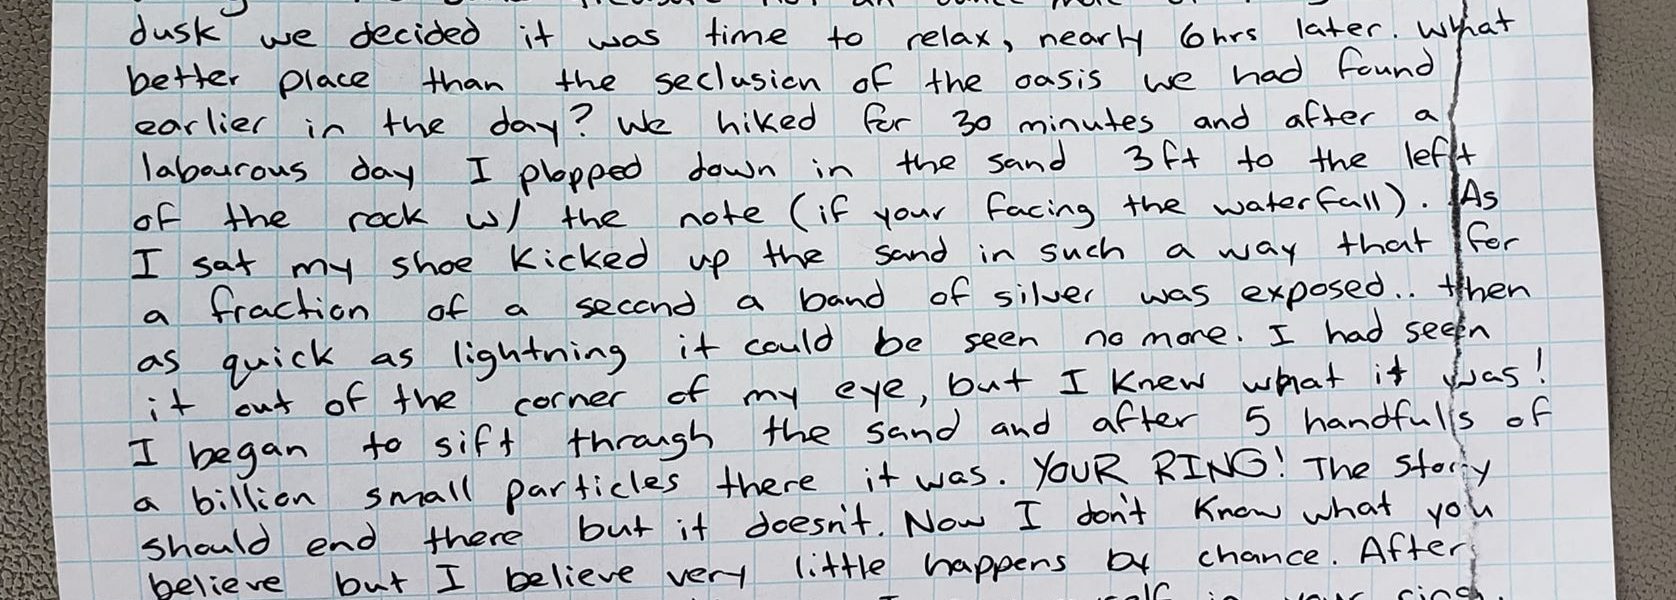 dusk we decided it was time to relax, nearly 6hrs later. What
better place than the seclusion of the oasis we had found
earlier in the day? We hiked for 30 minutes and after a
labourous day I plopped down in the sand 3ft to the left
of the rock w/ the note (if your facing the waterfall). As
I sat my shoe kicked up the sand in such a way that for
a fraction of a second a band of silver was exposed.. then
as quick as lightning it could be seen no more. I had seen
it out of the corner of my eye, but I knew what it was!
I began to sift through the sand and after 5 handfulls of
a billion small particles there it was. YOUR RING! The story
should end there but it doesn't. Now I don't know what you
believe but I believe very little happens by chance. After